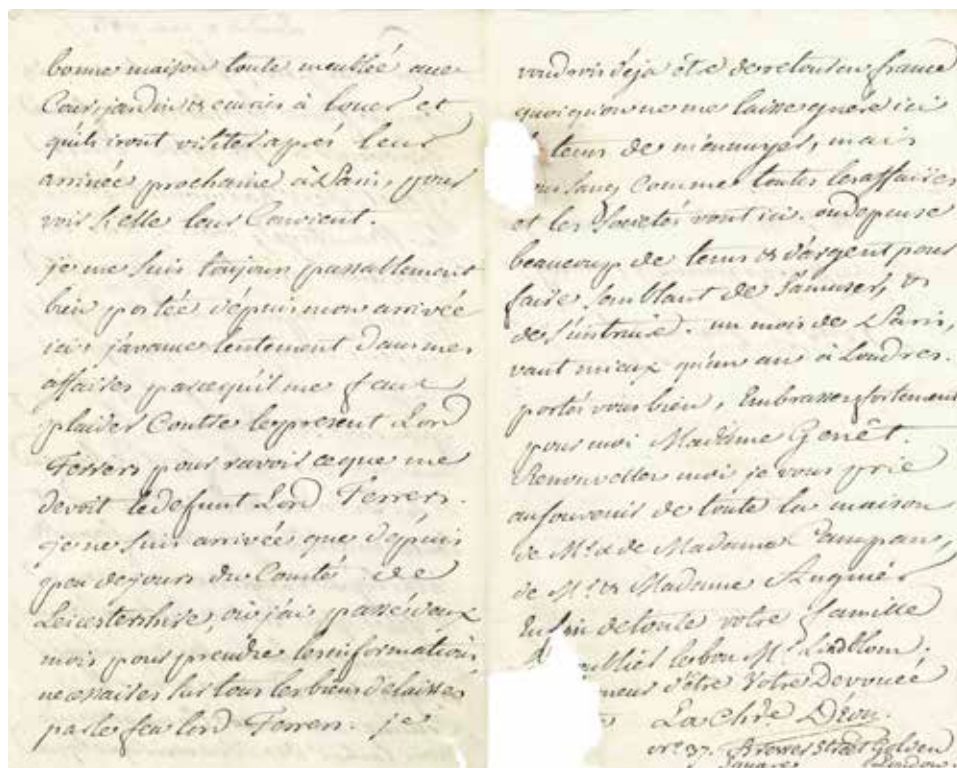 bonne maison toute meublée avec
Cour, jardin & ecuries à louer et
qu'ils iront visiter après leur
arrivée prochaine à Paris, pour
voir si elle leur Convient.
je me suis toujours passablement
bien portée dépuis mon arrivée
ici; j'avance lentement dans mes
affaires parcequ'il me faut
plaider Contre le present Lord
Ferrers pour ravoir ce que me
devoit le defunt Lord Ferrers.
je ne suis arrivée que dépuis
peu de jours du Comté de
Leicéstershire, où j'ai passé deux
mois pour prendre les informations
necessaires sur tous les biens délaissés
par le feu lord Ferrers. je
voudrois déja être de retour en france
quoiqu'on ne me laisse guere ici
le tems de m'ennuyer, mais
comme toutes les affaires
et les Societés vont ici. on depense
beaucoup de tems & d'argent pour
faire semblant de s'amuser, &
de s'instruire. un mois de Paris,
vaut mieux qu'un an à Londres.
portés vous bien, Embrassez fortement
pour moi Madame Genêt.
Renouvellez moi je vous prie
au souvenir de toute la maison
de Mr. & de Madame Campan,
de Mr. & Madame Auguié
Enfin de toute votre famille
le bon Mr. Lindblom.
d'être Votre Devouée
La Chre Déon
No. 37. Brewer Street Golden
Square London.